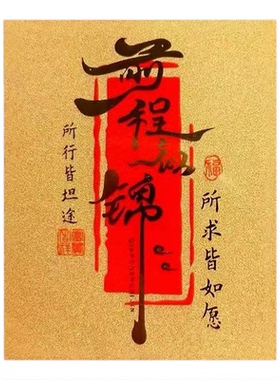 前程似锦
所行皆坦途
所求皆如愿